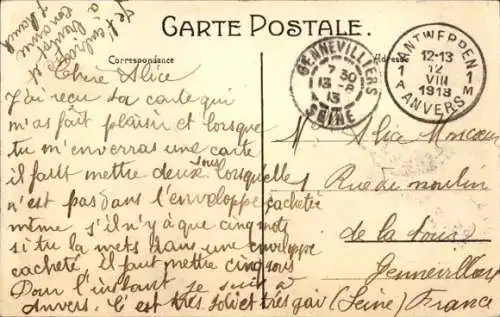 CARTE POSTALE.
Correspondance
Je t'embrasse
Chère Alice
J'ai reçu ta carte qui
m'as fait plaisir et lorsque
tu m'enverras une carte
il faut mettre deux sous lorsqu'elle
n'est pas dans l'enveloppe cachetée
même s'il n'y a que cinq mots
si tu la mets dans une enveloppe
cacheté il faut mettre cinq sous
Pour l'instant je suis à
Anvers. C'est très joli et très gai
GENNEVILLIERS
7 30
13 -8
13
SEINE
ANTWERPEN
12-13
12
VIII
1913
1 A
1 M
ANVERS
Alice
Rue du moulin
de la
Gennevilliers
(Seine) France